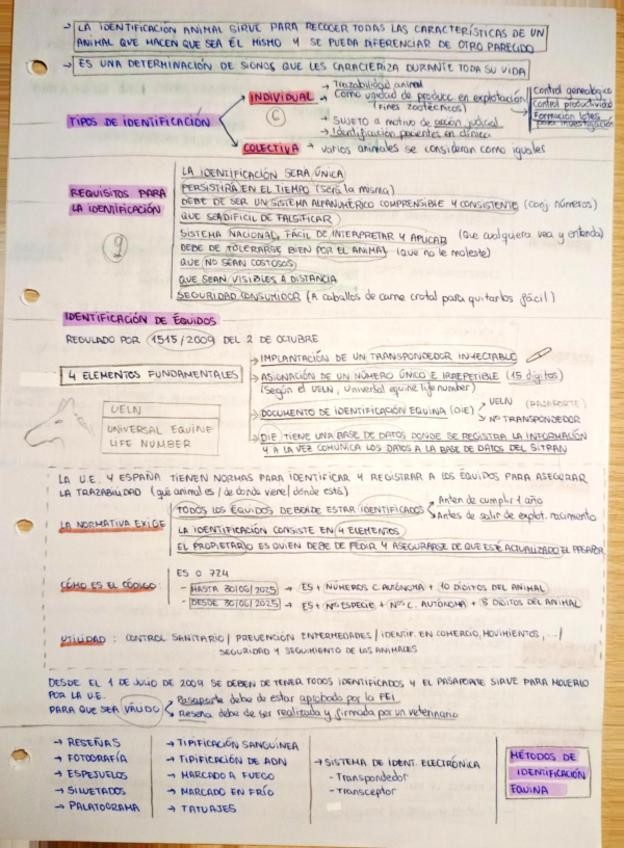 → LA IDENTIFICACIÓN ANIMAL SIRVE PARA RECOGER TODAS LAS CARACTERÍSTICAS DE UN
ANIMAL QUE HACEN QUE SEA ÉL MISMO Y SE PUEDA DIFERENCIAR DE OTRO PARECIDO
→ ES UNA DETERMINACIÓN DE SIGNOS QUE LES CARACTERIZA DURANTE TODA SU VIDA
TIPOS DE IDENTIFICACIÓN
INDIVIDUAL
C
→ Trazabilidad animal
→ Como unidad de producc en explotación
(Fines zootécnicos)
Control genealógico
Control productividad
Formación lotes
para investigación
→ SUJETO A motivo de acción judicial
→ Identificación pacientes en clínica
COLECTIVA → varios animales se consideran como iguales
REQUISITOS PARA
LA IDENTIFICACIÓN
9
LA IDENTIFICACIÓN SERÁ ÚNICA
PERSISTIRÁ EN EL TIEMPO (Será la misma)
DEBE DE SER UN SISTEMA ALFANUMÉRICO COMPRENSIBLE Y CONSISTENTE (conj. números)
QUE SEA DIFICIL DE FALSIFICAR
SISTEMA NACIONAL, FÁCIL DE INTERPRETAR Y APLICAR (Que cualquiera vea y entienda)
DEBE DE TOLERARSE BIEN POR EL ANIMAL (que no le moleste)
QUE NO SEAN COSTOSOS
QUE SEAN VISIBLES A DISTANCIA
SEGURIDAD CONSUMIDOR (A caballos de carne crotal para quitarlos fácil)
IDENTIFICACIÓN DE ÉQUIDOS
REGULADO POR 1515/2009 DEL 2 DE OCTUBRE
4 ELEMENTOS FUNDAMENTALES
→ IMPLANTACIÓN DE UN TRANSPONDEDOR INYECTABLE
→ ASIGNACIÓN DE UN NÚMERO ÚNICO E IRREPETIBLE (15 dígitos)
(Según el UELN, Universal equine life number)
→ DOCUMENTO DE IDENTIFICACIÓN EQUINA (DIE)
UELN (PASAPORTE)
Nº TRANSPONDEDOR
→ DIE TIENE UNA BASE DE DATOS DONDE SE REGISTRA LA INFORMACIÓN
Y A LA VEZ COMUNICA LOS DATOS A LA BASE DE DATOS DEL SITRAN
UELN
UNIVERSAL EQUINE
LIFE NUMBER
LA U.E. Y ESPAÑA TIENEN NORMAS PARA IDENTIFICAR Y REGISTRAR A LOS ÉQUIDOS PARA ASEGURAR
LA TRAZABILIDAD (qué animal es / de donde viene / dónde está)
LA NORMATIVA EXIGE
TODOS LOS ÉQUIDOS DEBERÁN ESTAR IDENTIFICADOS
Antes de cumplir 1 año
Antes de salir de explot. nacimiento
LA IDENTIFICACIÓN CONSISTE EN 4 ELEMENTOS
EL PROPIETARIO ES QUIEN DEBE DE PEDIR Y ASEGURARSE DE QUE ESTÉ ACTUALIZADO EL PASAPOR
CÓMO ES EL CÓDIGO:
ES O 724
- HASTA 30/06/2025 → ES + NÚMEROS C. AUTÓNOMA + 10 DÍGITOS DEL ANIMAL
- DESDE 30/06/2025 → ES + Nº ESPECIE + Nos C. AUTÓNOMA + 8 DÍGITOS DEL ANIMAL
UTILIDAD : CONTROL SANITARIO / PREVENCIÓN ENFERMEDADES / IDENTIF. EN COMERCIO, MOVIMIENTOS, ... /
SEGURIDAD Y SEGUIMIENTO DE LOS ANIMALES
DESDE EL 1 DE JULIO DE 2009 SE DEBEN DE TENER TODOS IDENTIFICADOS Y EL PASAPORTE SIRVE PARA MOVERLO
POR LA U.E.
PARA QUE SEA VÁLIDO
Pasaporte debe de estar aprobado por la FEI
Reseña debe de ser realizada y firmada por un veterinario
→ RESEÑAS
→ FOTOGRAFÍA
→ ESPEJUELOS
→ SILUETADOS
→ PALATOGRAMA
→ TIPIFICACIÓN SANGUÍNEA
→ TIPIFICACIÓN DE ADN
→ MARCADO A FUEGO
→ MARCADO EN FRÍO
→ TATUAJES
→ SISTEMA DE IDENT. ELECTRÓNICA
- Transpondedor
- Transceptor
MÉTODOS DE
IDENTIFICACIÓN
EQUINA